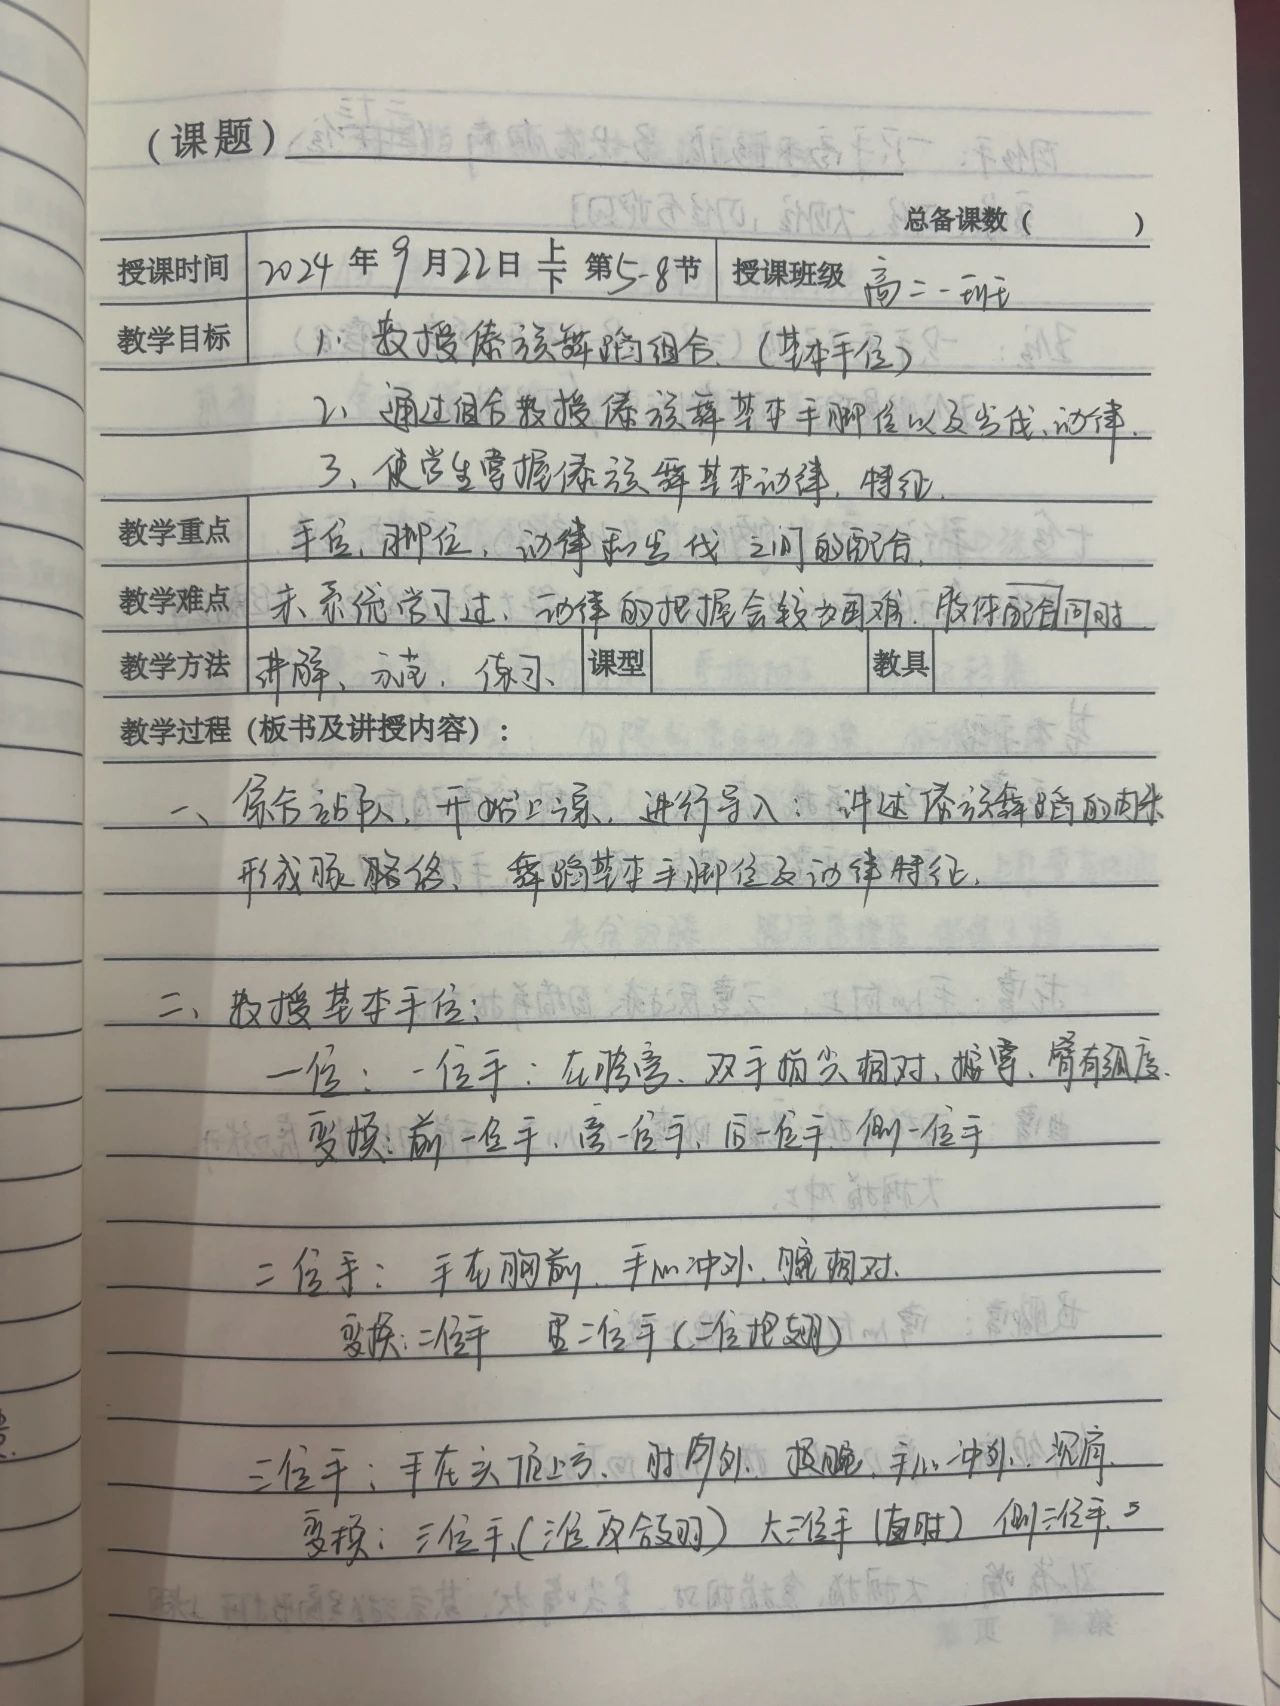 (课题)
总备课数（ ）
授课时间 2024年9月22日 上下 第5-8节 授课班级 高二一班
教学目标 1、教授傣族舞蹈组合.(基本手位)
2、通过组合教授傣族舞基本手脚位以及步伐、动律.
3、使学生掌握傣族舞基本动律、特征.
教学重点 手位、脚位、动律和步伐之间的配合.
教学难点 未系统学习过、动律的把握会较为困难.肢体配合同时
教学方法 讲解、示范、练习、 课型 教具
教学过程（板书及讲授内容）：
一、综合站队，开始上课，进行导入：讲述傣族舞蹈的由来
形成脉络、舞蹈基本手脚位及动律特征.
二、教授基本手位：
一位：一位手：在胯旁、双手指尖相对、按掌、臂有弧度.
变换：前一位手、旁一位手、后一位手、侧一位手
二位手：手在胸前、手心冲外、腕相对.
变换：二位手 二位手(二位抱翅)
三位手：手在头顶上方、肘外、提腕、手心冲外、沉肩.
变换：三位手.(三位合翅) 大三位手(直肘) 侧三位手.